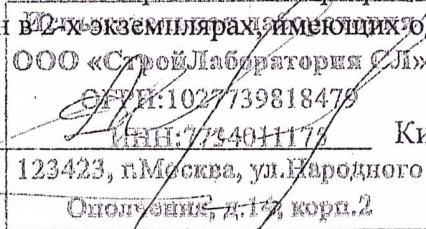 Испытательная лаборатория
н в 2-х экземплярах, имеющих о
ООО «СтройЛаборатория СЛ»
ОГРН:1027739818479
ИНН:7734011175 Ки
123423, г.Москва, ул.Народного
Ополчения, д.14, корп.2